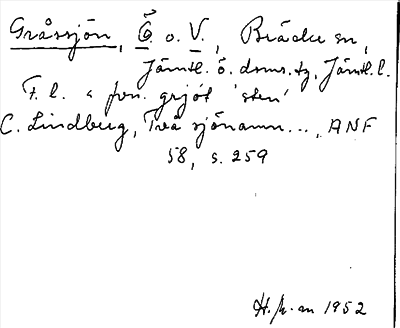 Gråssjön, Ö. o. V., Bräcke sn,
Jämtl. ö. doms.tg, Jämtl. l.
F. l. < fvn. grjót 'sten'
C. Lindberg, Två sjönamn..., ANF
58, s. 259
1952